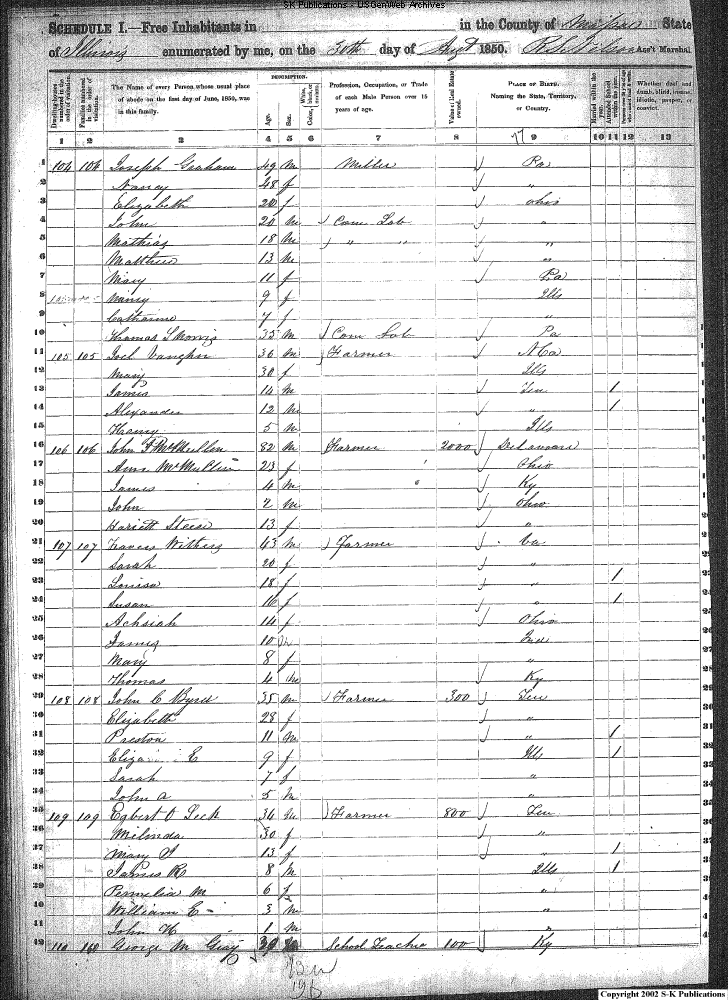 SK Publications - USGenWeb Archives
SCHEDULE I.—Free Inhabitants in in the County of State
of Illinois enumerated by me, on the 30th day of Augt 1850. Ass't Marshal
Dwelling-houses numbered in the order of visitation.
Families numbered in the order of visitation.
The Name of every Person whose usual place of abode on the first day of June, 1850, was in this family.
DESCRIPTION.
Age.
Sex.
White, black, or mulatto.
Color,
Profession, Occupation, or Trade of each Male Person over 15 years of age.
Value of Real Estate owned.
PLACE OF BIRTH. Naming the State, Territory, or Country.
Married within the year.
Whether deaf and dumb, blind, insane, idiotic, pauper, or convict.
1 2 3 4 5 6 7 8 9 10 11 12 13
1 104 104 Joseph Graham 49 m Miller Pa
2 Nancy 48 f "
3 Elizabeth 20 f Ohio
4 John 20 m Com Lab "
5 Mathias 18 m " " "
6 Matthew 13 m "
7 Mary 11 f Pa
8 Nancy 9 f Ills
9 Catharine 7 f "
10 Thomas S Morris 35 m Com Lab Pa
11 105 105 Joel Vaughn 36 m Farmer N Ca
12 Mary 30 f Ills
13 James 14 m Ten /
14 Alexander 12 m " /
15 5 m Ills
16 106 106 John F McMullen 82 m Farmer 2000 Delaware
17 Ann McMullin 23 f Ohio
18 James 4 m Ky
19 John 2 m Ohio
20 Hariett Steese 13 f "
21 107 107 Frances Withers 43 m Farmer Va
22 Sarah 20 f "
23 Louisa 18 f " /
24 Susan 16 f " /
25 Achsiah 14 f Ohio
26 James 10 m Ind
27 Mary 8 f "
28 Thomas 4 m Ky
29 108 108 John C Byrd 35 m Farmer 300 Ten
30 Elizabeth 28 f "
31 Preston 11 m " /
32 Eliza E 9 f Ills /
33 Sarah 7 f "
34 John A 5 m "
35 109 109 Egbert O Leek 34 m Farmer 800 Ten
36 Melinda 30 f "
37 Mary J 13 f " /
38 James R 8 m Ills /
39 Permelia M 6 f "
40 William E - 3 m "
41 John H 1 m
42 110 George M Gray 39 School Teacher 100 Ky
Copyright 2002 S-K Publications